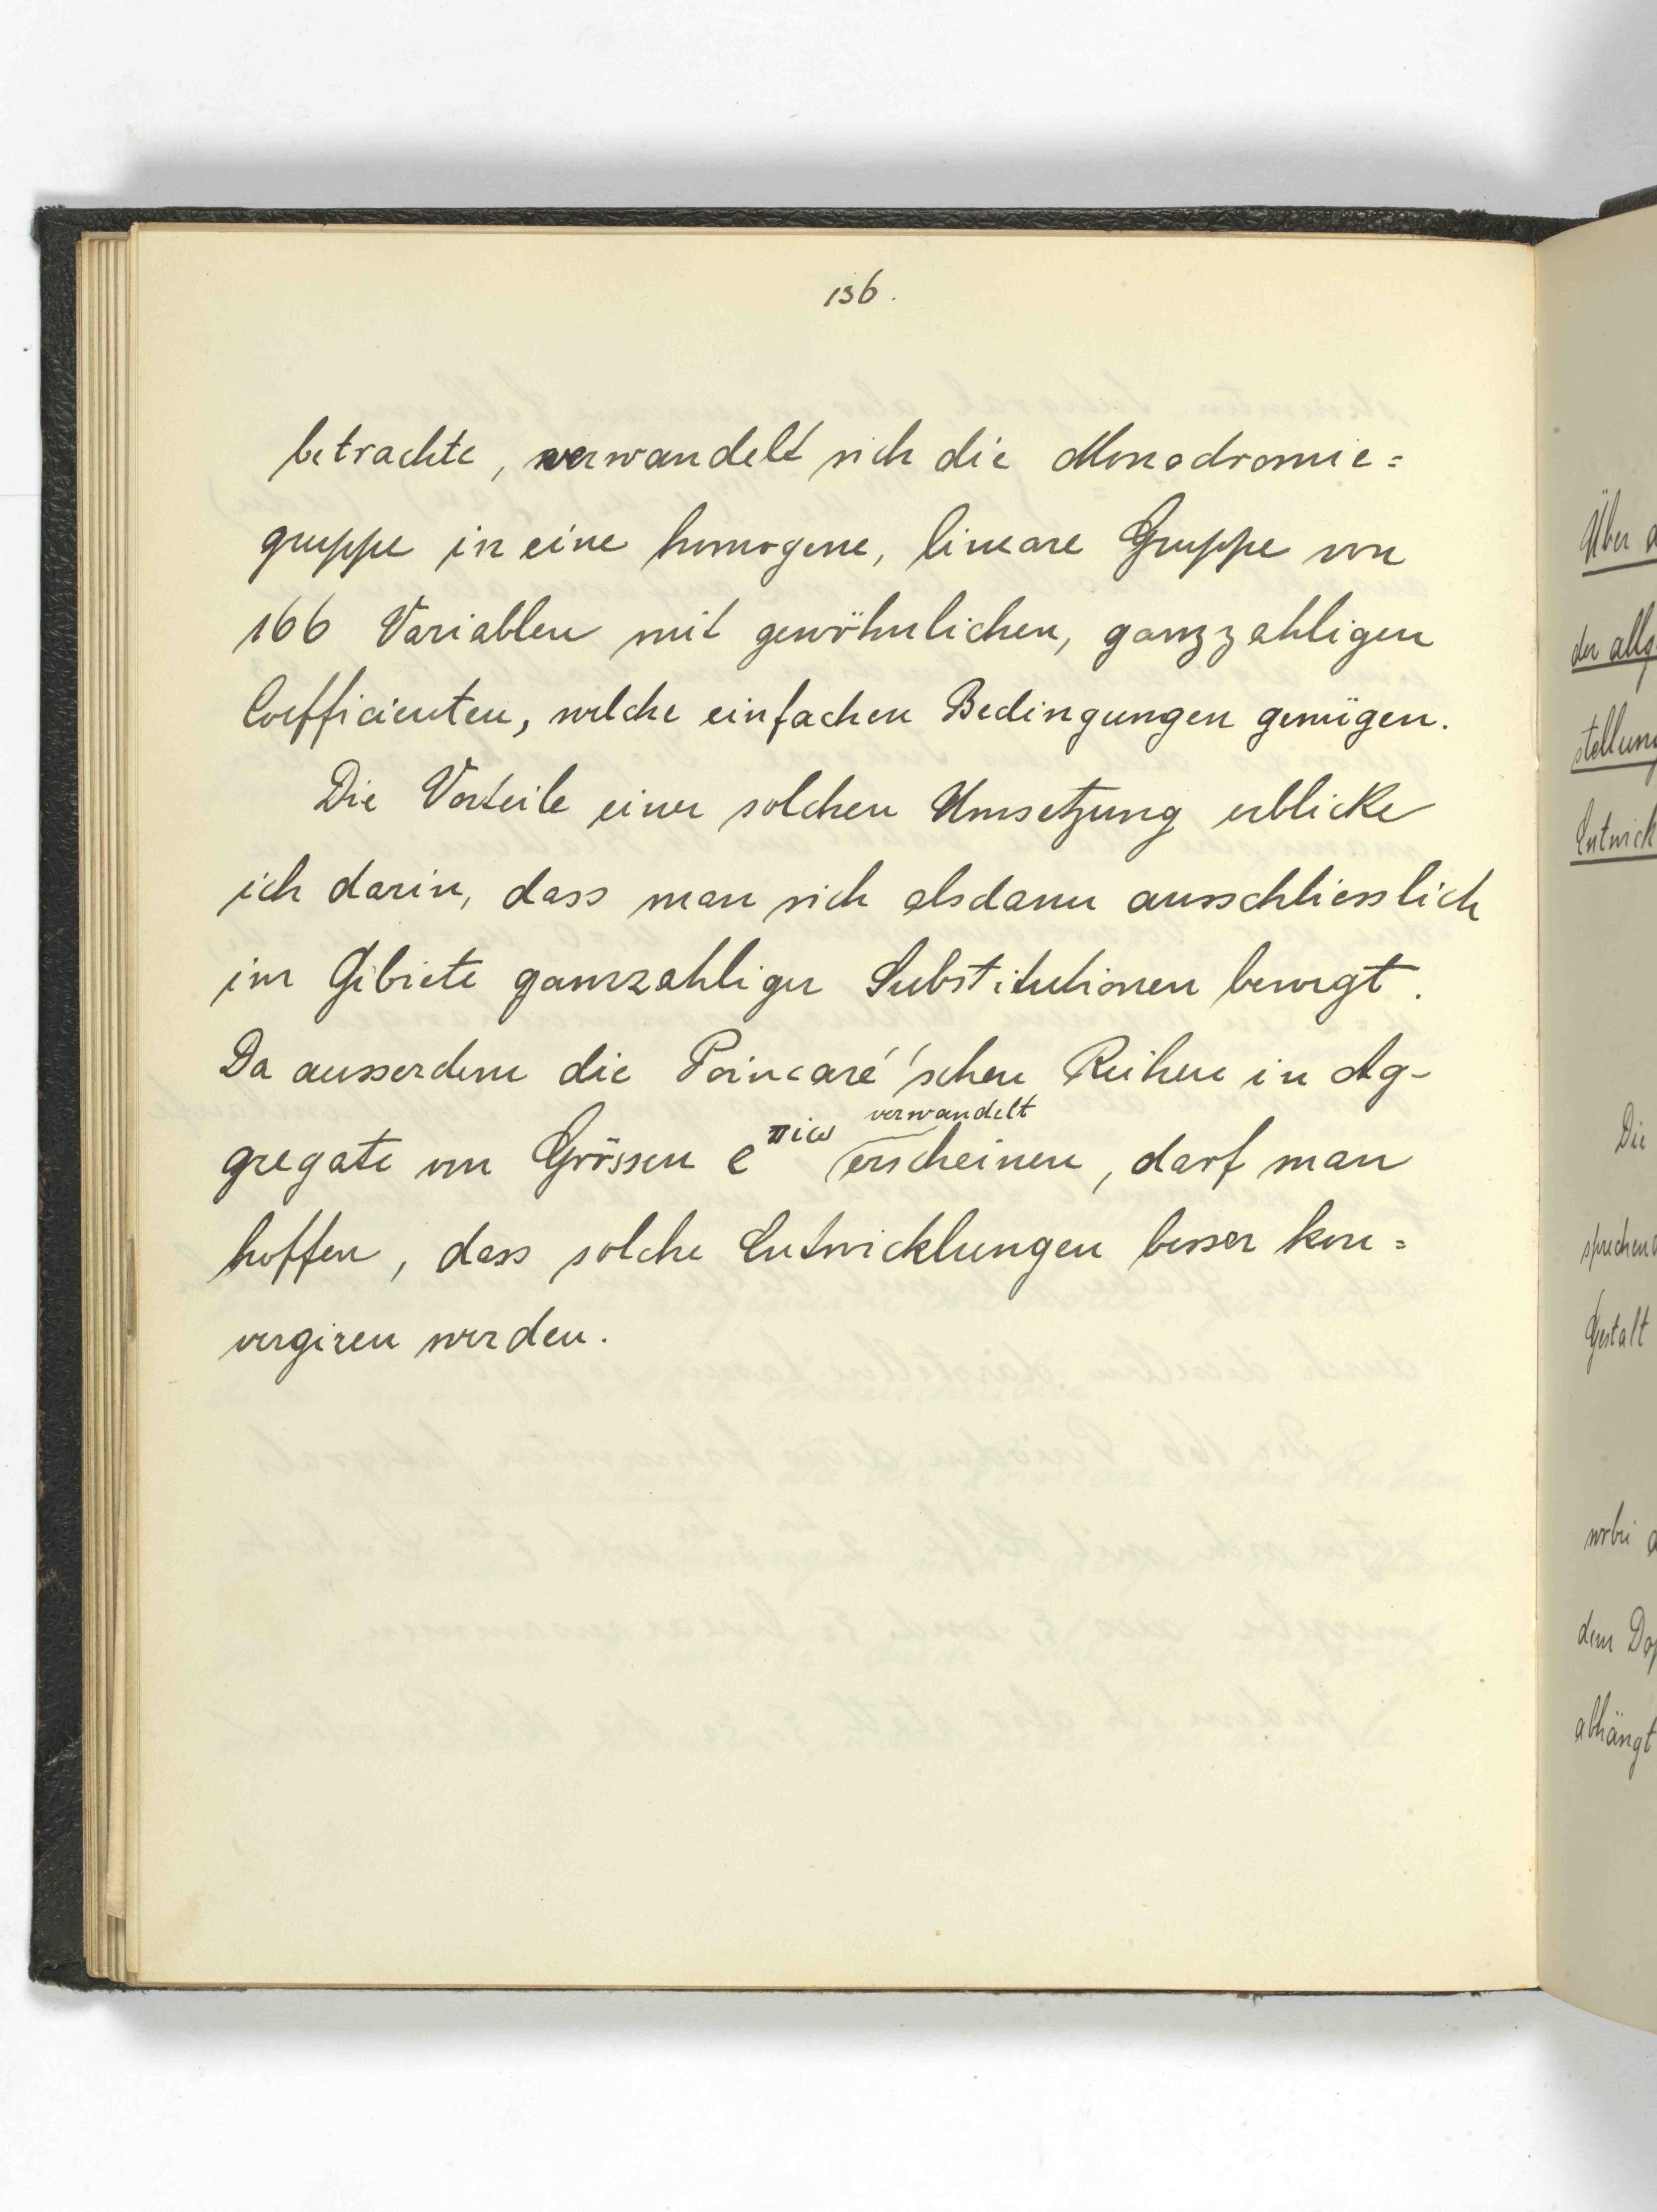 136.
betrachte, verwandelt sich die Monodromie=
gruppe in eine homogene, lineare Gruppe von
166 Variablen mit gewöhnlichen, ganzzahligen
Coefficienten, welche einfachen Bedingungen genügen.
Die Vorteile einer solchen Umsetzung erblicke
ich darin, dass man sich alsdann ausschliesslich
im Gebiete ganzzahliger Substitutionen bewegt.
Da ausserdem die Poincaré'schen Reihen in Ag-
verwandelt
gregate von Grössen e^πiω erscheinen, darf man
hoffen, dass solche Entwicklungen besser kon=
vergiren werden.
Über
der allg
stellung
Entwick
Die
sprechend
Gestalt
wobei
dem Dop
abhängt